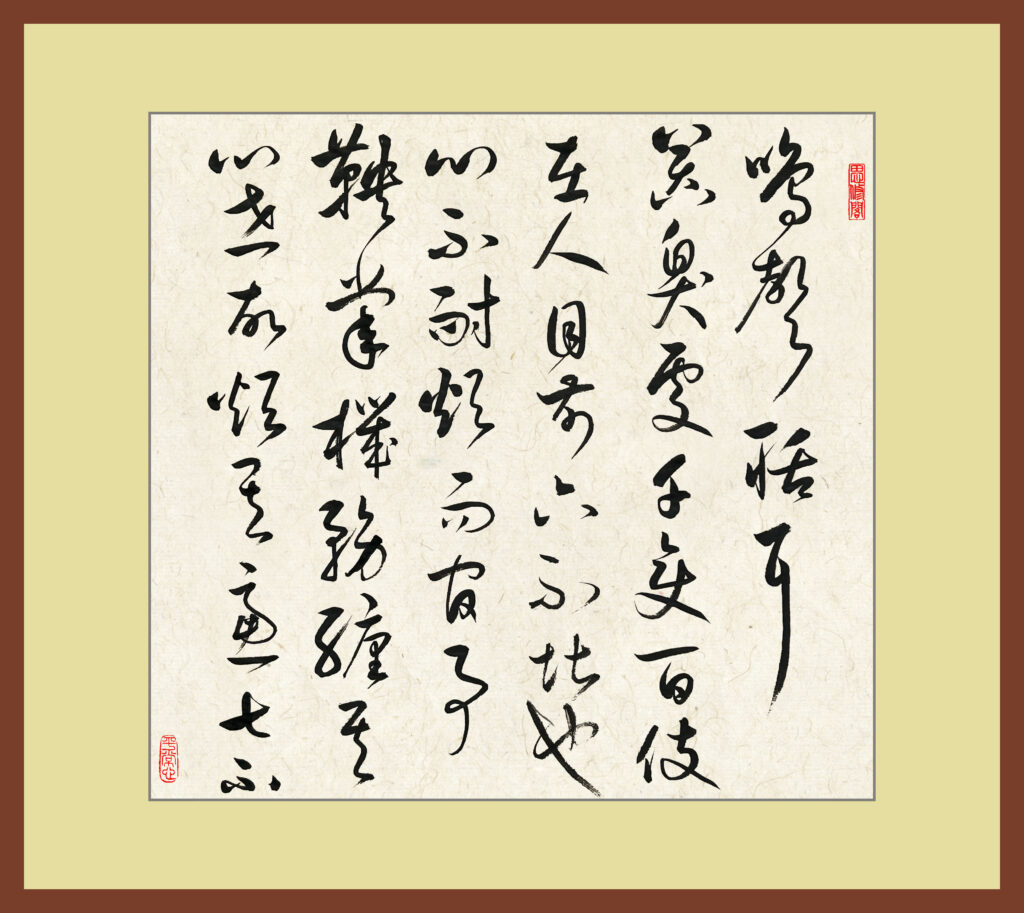 思修閣
鳴聲聒耳
囂臭處千變百伎
在人目前六不堪也
心不耐煩而官事
鞅掌機務纏其
心世故煩其慮七不
平常心